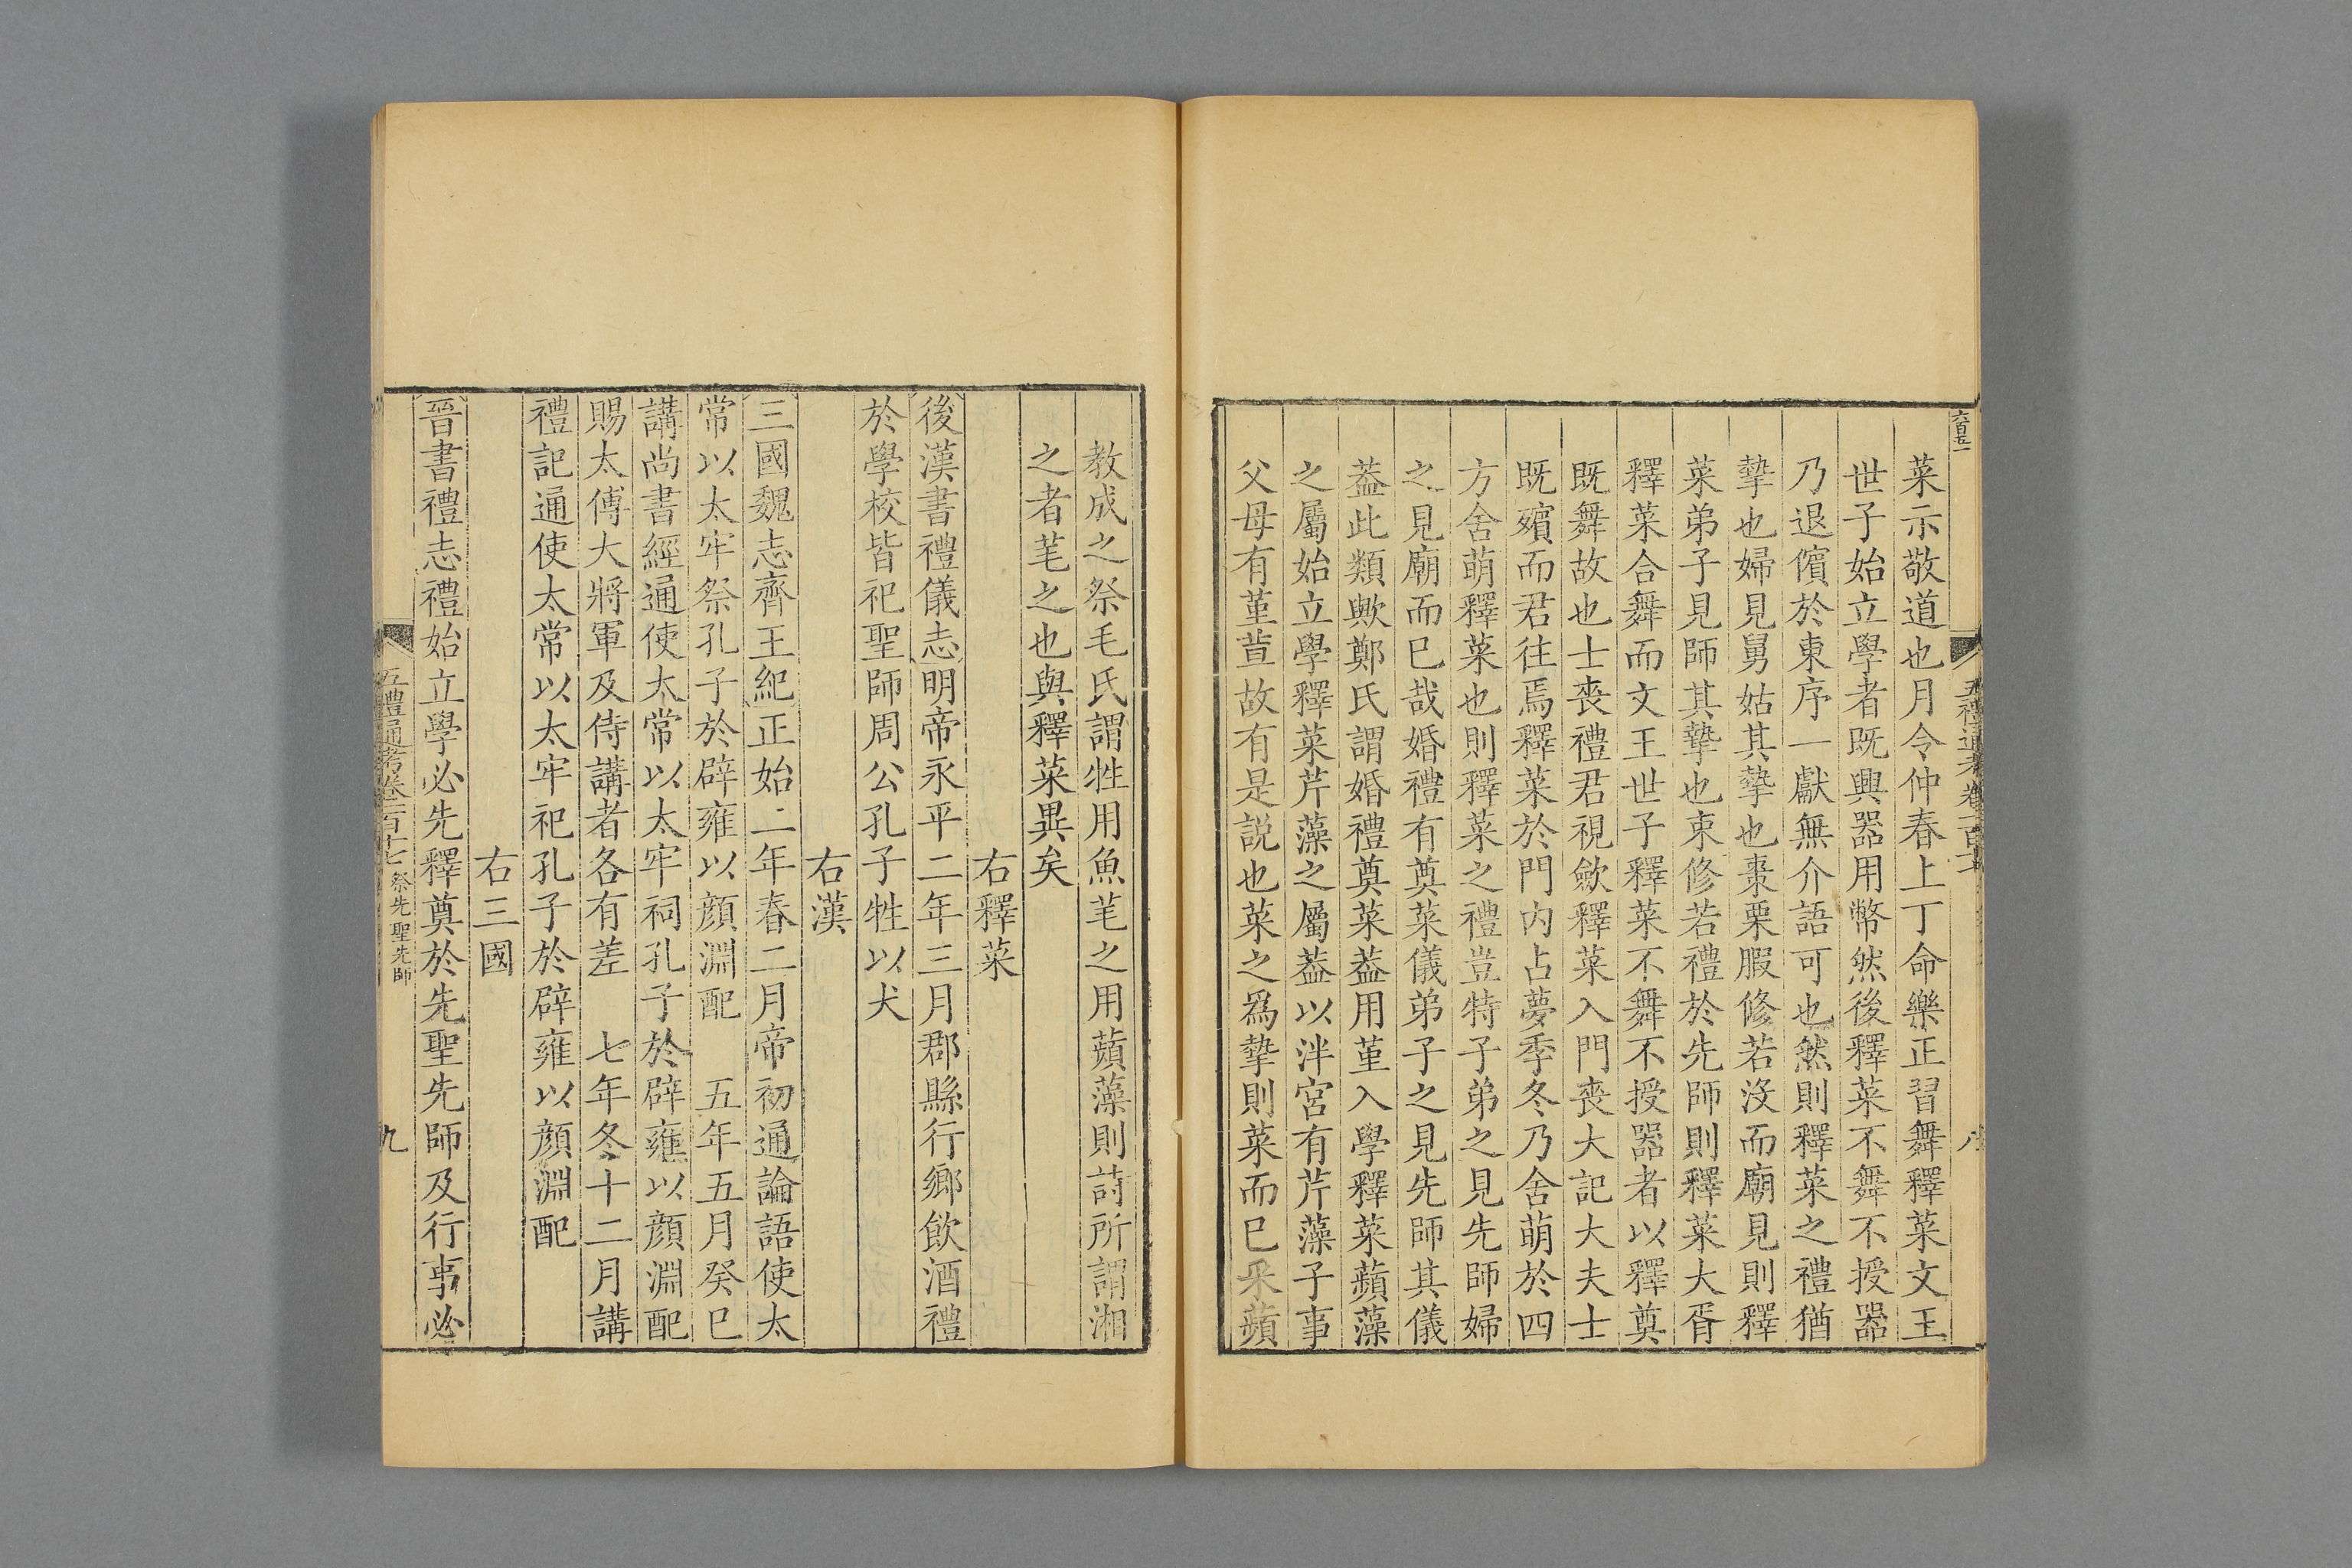 六百五一
五禮通考卷一百十七
八
菜示敬道也月令仲春上丁命樂正習舞釋菜文王
世子始立學者既興器用幣然後釋菜不舞不授器
乃退儐於東序一獻無介語可也然則釋菜之禮猶
摯也婦見舅姑其摯也棗栗腶修若沒而廟見則釋
菜弟子見師其摯也束修若禮於先師則釋菜大胥
釋菜合舞而文王世子釋菜不舞不授器者以釋奠
既舞故也士喪禮君視歛釋菜入門喪大記大夫士
既殯而君往焉釋菜於門内占夢季冬乃舍萌於四
方舍萌釋菜也則釋菜之禮豈特子弟之見先師婦
之見廟而已哉婚禮有奠菜儀弟子之見先師其儀
葢此類歟鄭氏謂婚禮奠菜葢用堇入學釋菜蘋藻
之屬始立學釋菜芹藻之屬葢以泮宮有芹藻子事
父母有堇荁故有是説也菜之爲摯則菜而已采蘋
教成之祭毛氏謂牲用魚芼之用蘋藻則詩所謂湘
之者芼之也與釋菜異矣
右釋菜
後漢書禮儀志明帝永平二年三月郡縣行鄉飲酒禮
於學校皆祀聖師周公孔子牲以犬
右漢
三國魏志齊王紀正始二年春二月帝初通論語使太
常以太牢祭孔子於辟雍以顔淵配　五年五月癸巳
講尚書經通使太常以太牢祠孔子於辟雍以顔淵配
賜太傅大將軍及侍講者各有差　七年冬十二月講
禮記通使太常以太牢祀孔子於辟雍以顔淵配
右三國
晉書禮志禮始立學必先釋奠於先聖先師及行事必
五禮通考卷一百十七 祭先聖先師
九